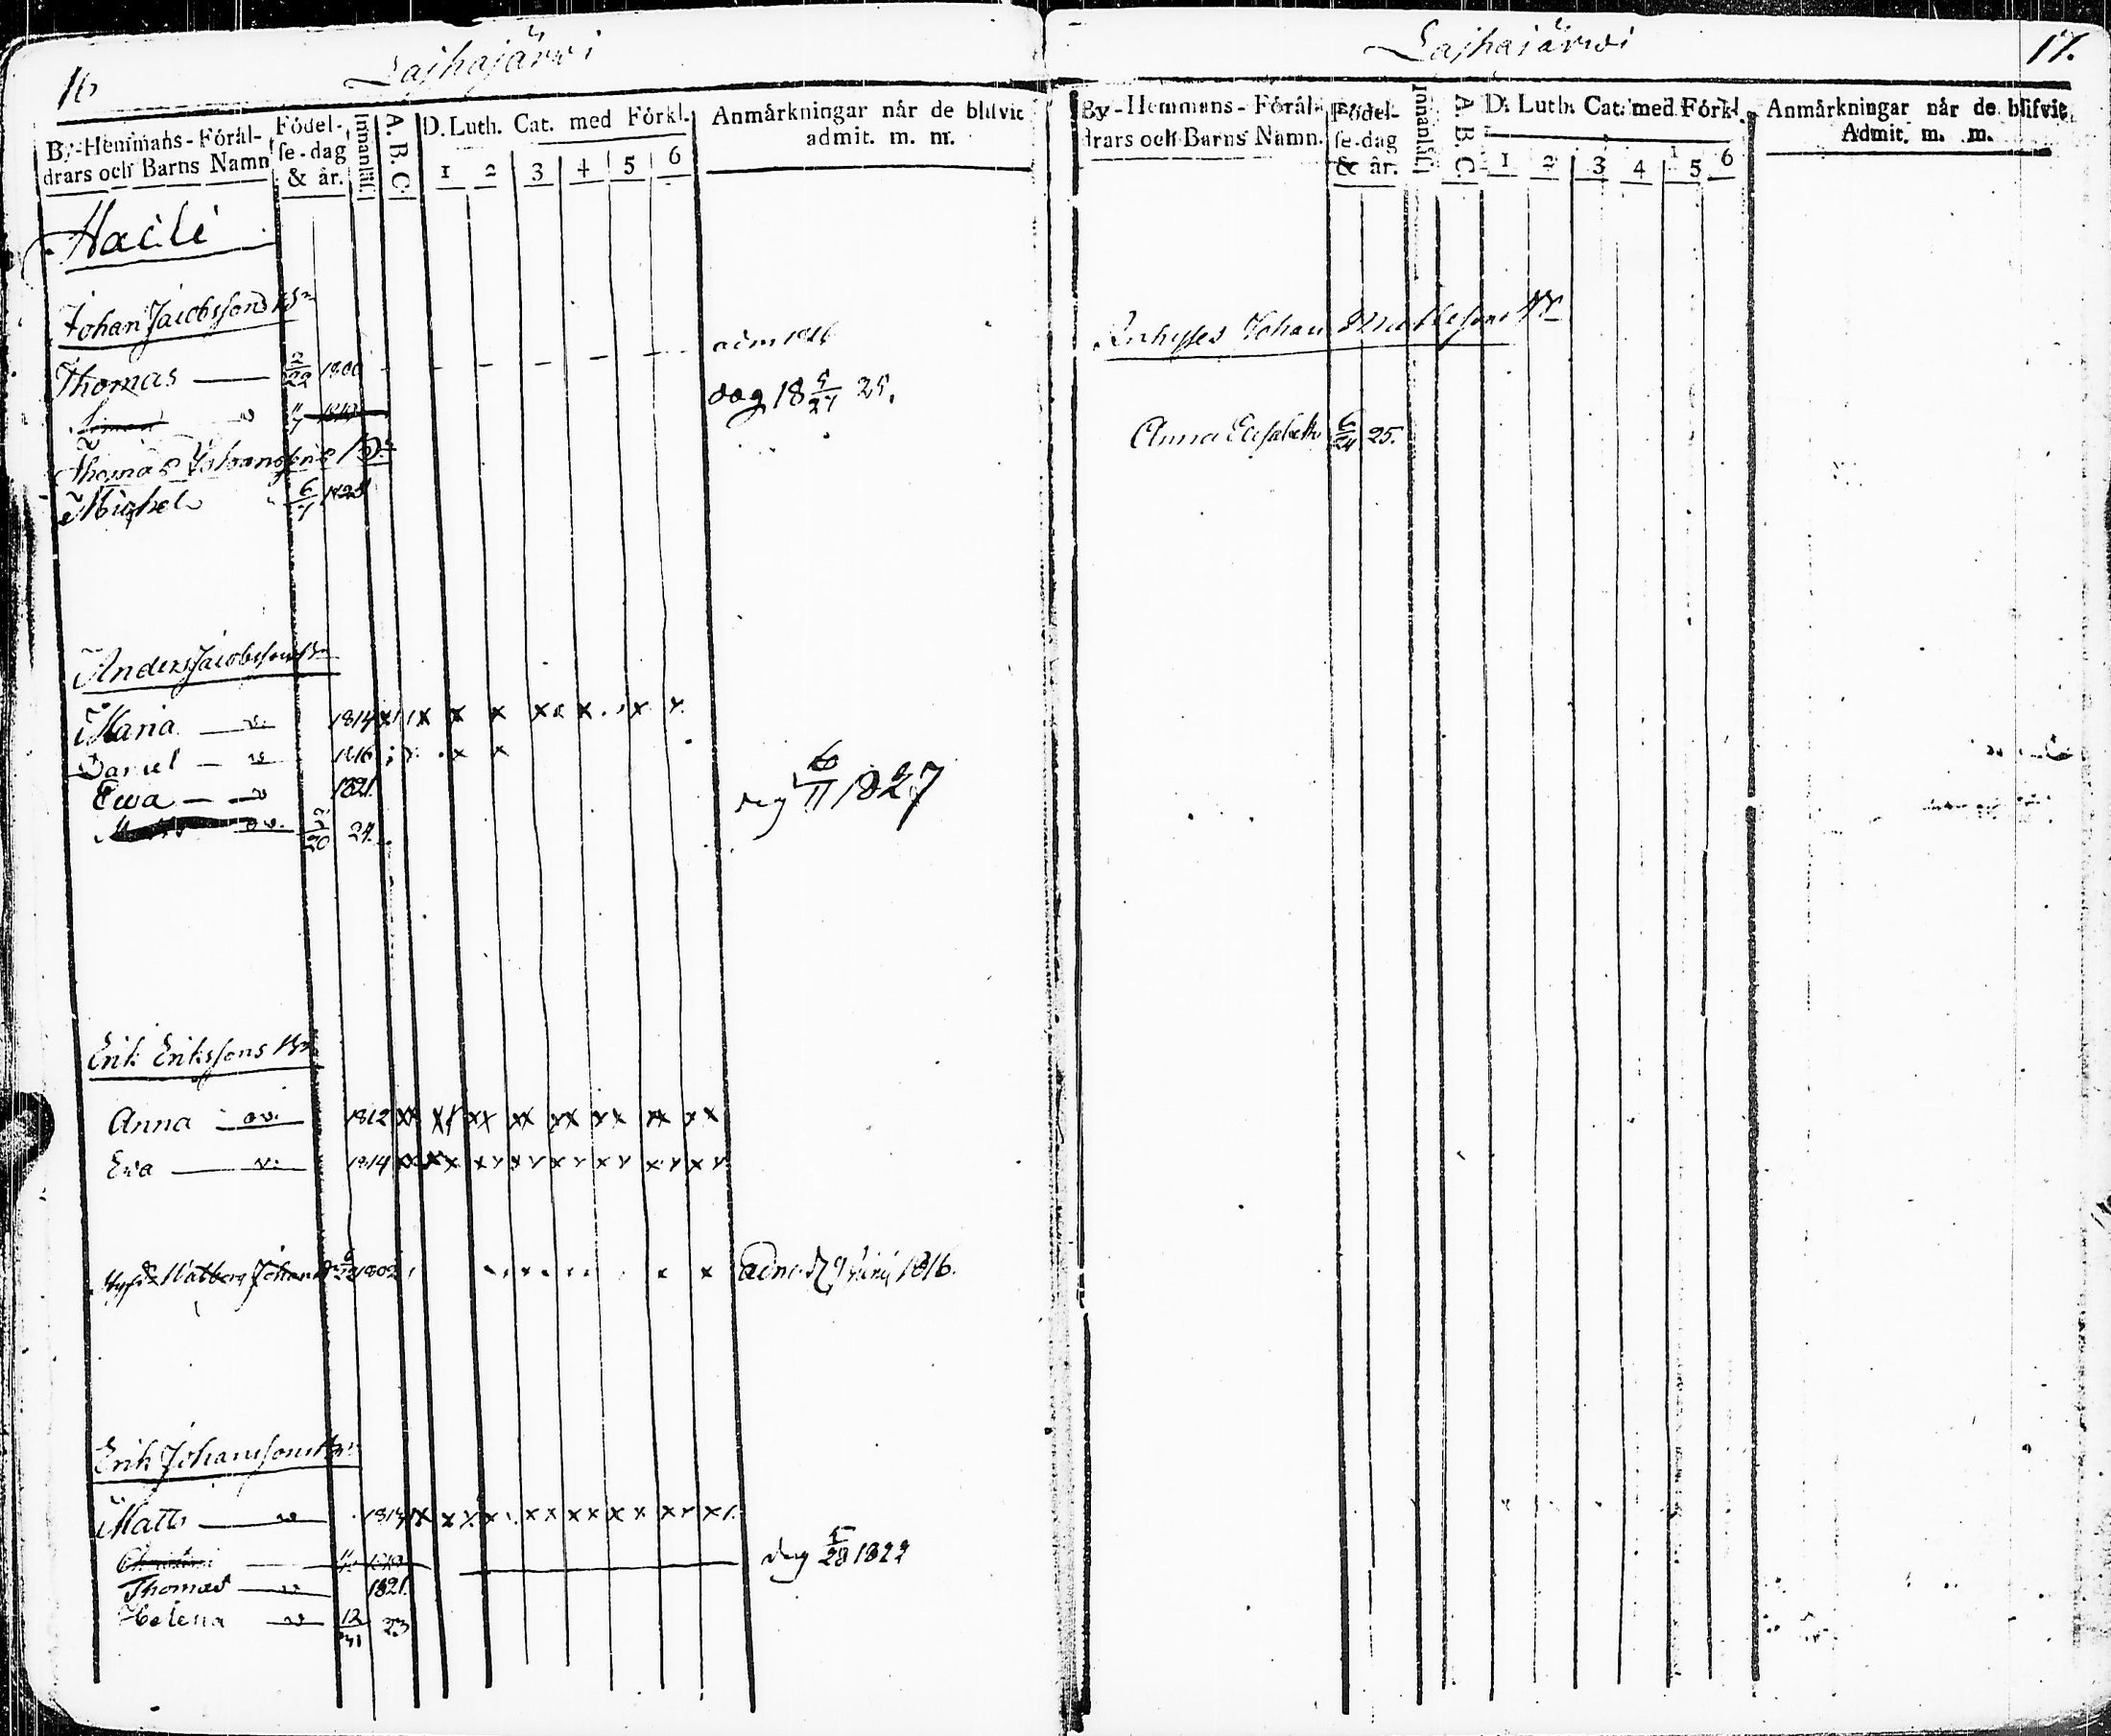 16
Lajhajärwi
By-Hemmans-Föräl-
drars och Barns Namn
Födel-
se-dag
& år.
Innanläs.
A. B. C.
D. Luth. Cat. med Förkl.
1 2 3 4 5 6
Anmärkningar når de blifvit
admit. m. m.
Johan Jacobssons Bn
adm 1816
Thomas 2/22 1800
dag 18 5/27 25.
Thomas Johanssons Bn
Michel 6/7
Anders Jacobssons Bn
Maria 1814 x x x x x x x x
Daniel 1816 x x
Ewa 1821.
20 24.
6/11 1827
Erik Erikssons Bn
Anna 1812 xx xx xx xx xx xx xx xx
Ewa 1814 xx xx xx xx xx xx xx xx
Johan 1802 x x
9 Junij 1816.
Erik Johanssons Bn
Matts 1814 x x x x x x x x x x x x x x
28 1822
Thomas 1821.
Helena 12/31 23
Lajhajärwi
17.
By-Hemmans-Föräl-
drars och Barns Namn.
Födel-
se-dag
& år.
Innanläs.
A. B. C.
D. Luth. Cat. med Förkl.
1 2 3 4 5 6
Anmärkningar når de blifvit
Admit. m. m.
Johan
Anna Elisabeth 6/24 25.